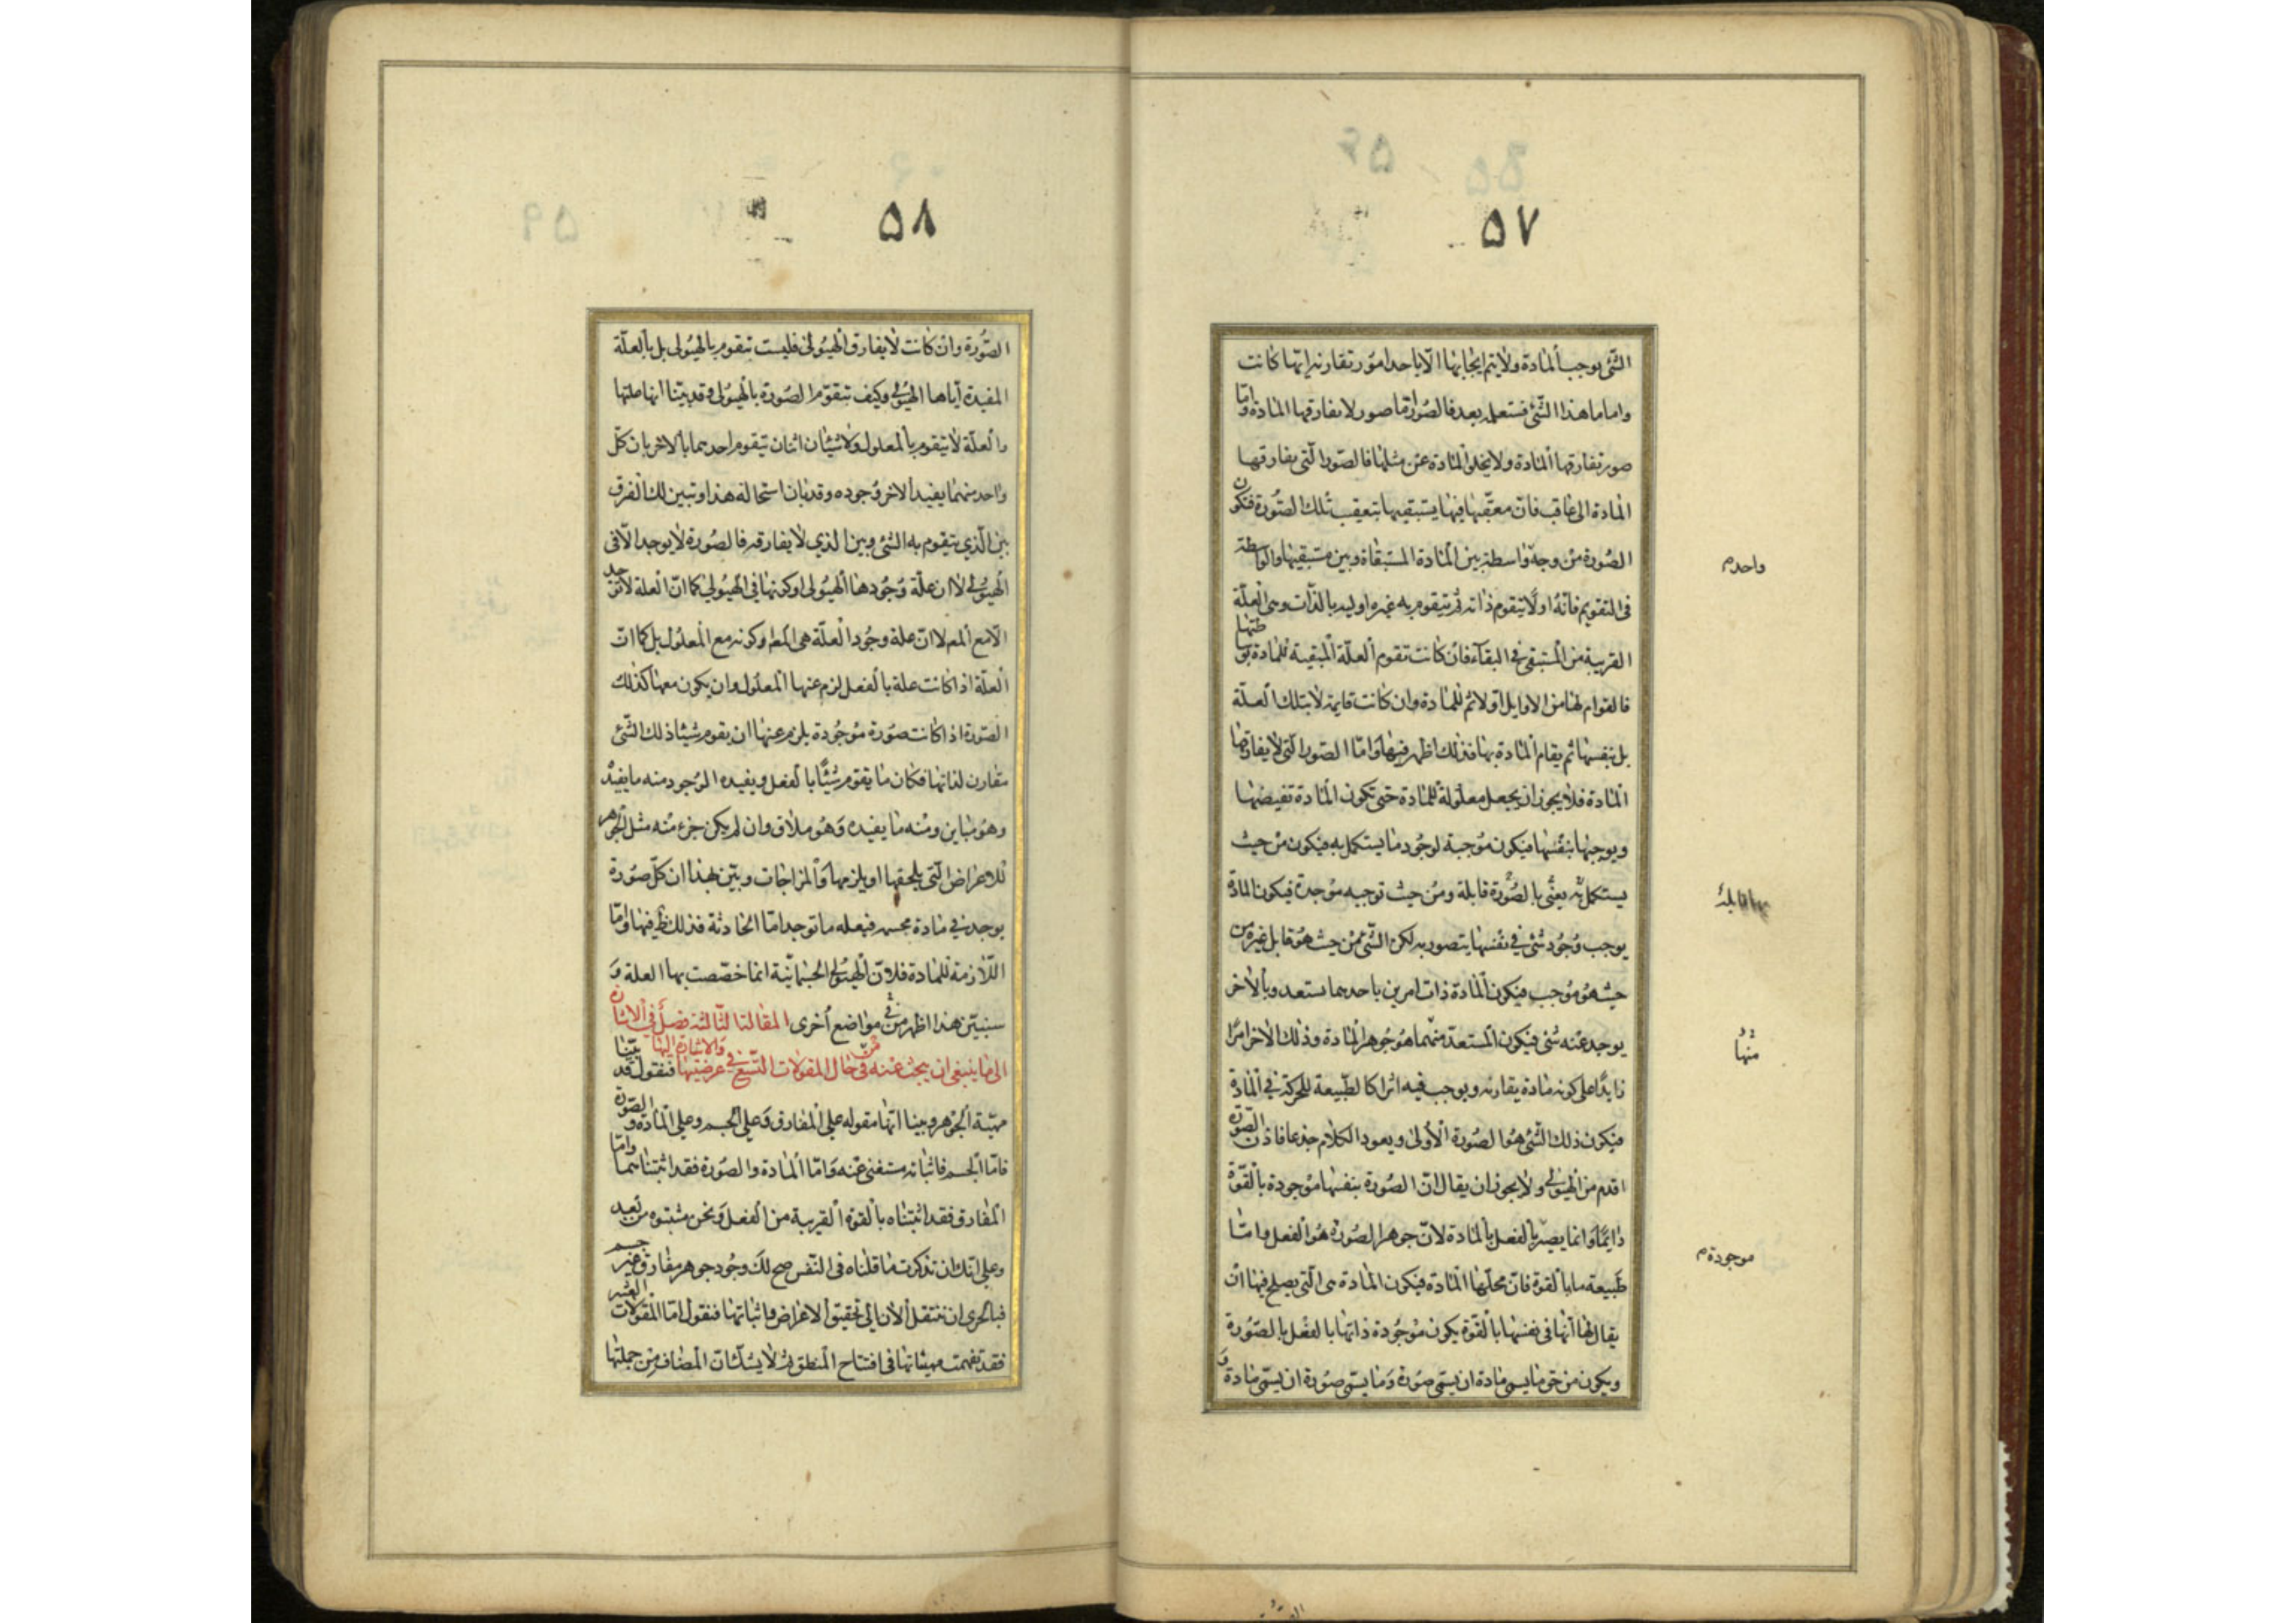 ٥٧
الشئ يوجب المادة ولا يتم ايجابها الا باحد امور تقارنه ايتها كانت
واما ما هذا الشئ فستعلمه بعد فالصور اما صور لا تفارقها المادة واما
صور تفارقها المادة ولا يخلو المادة عن مثلها فالصور التى يفارقها
المادة الى عاقب فان معقبها فيها يستبقيها بتعقيب تلك الصورة فتكون
الصورة من وجه واسطة بين المادة المستبقاة وبين مستبقيها والواسطة
فى التقويم فانه اولا يتقوم ذاته ثم يتقوم به غيره اولية بالذات وهى العلة
القريبة من المستبقى فى البقاء فان كانت تقوم العلة المبقية للمادة بوساطتها
فالقوام لها من الاوايل اولا ثم للمادة وان كانت قايمة لا بتلك العلة
بل بنفسها ثم يقام المادة بها فذلك اظهر فيها واما الصور التى لا يفارقها
المادة فلا يجوز ان يجعل معلولة للمادة حتى تكون المادة تقيضها
ويوجبها بنفسها فيكون موجبة لوجود ما يستكمل به فيكون من حيث
يستكمل به يعنى بالصورة قابلة ومن حيث توجبه موجدة فيكون المادة
يوجب وجود شئ فى نفسها يتصور به لكن الشئ من حيث هو قابل غيره من
حيث هو موجب فيكون المادة ذات امرين باحدهما يستعد وبالاخر
يوجد عنه شئ فيكون المستعد منهما هو جوهر المادة وذلك الاخر امرا
زايدا على كونه مادة يقارنه ويوجب فيه اثرا كالطبيعة للحركة فى المادة
فيكون ذلك الشئ هو الصورة الاولى ويعود الكلام جذعا فاذن الصورة
اقدم من الهيولى ولا يجوز ان يقال ان الصورة بنفسها موجودة بالقوة
دايما وانما يصير بالفعل بالمادة لان جوهر الصورة هو الفعل واما
طبيعة ما بالقوة فان محلها المادة فيكون المادة هى التى يصلح فيها ان
يقال لها انها فى نفسها بالقوة يكون موجودة ذاتها بالفعل بالصورة
ويكون من حق ما يسمى مادة ان يسمى صورة وما يسمى صورة ان يسمى مادة و
واحدة
منها
موجودة م
٥٨
الصورة وان كانت لا يفارق الهيولى فليست تتقوم بالهيولى بل بالعلة
المفيدة اياها الهيولى وكيف تتقوم الصورة بالهيولى وقد بينا انها علتها
والعلة لا يتقوم بالمعلول ولا شيئان اثنان يتقوم احدهما بالاخر بان كل
واحد منهما يفيد الاخر وجوده وقد بان استحالة هذا وتبين لك الفرق
بين الذي يتقوم به الشئ وبين الذي لا يفارقه فالصورة لا يوجد الا فى
الهيولى لا ان علة وجودها الهيولى او كونها فى الهيولى كما ان العلة لا توجد
الا مع المعلول لا ان علة وجود العلة هى المعلول او كونه مع المعلول بل كما ان
العلة اذا كانت علة بالفعل لزم عنها المعلول وان يكون معها كذلك
الصورة اذا كانت صورة موجودة يلزم عنها ان يقوم شيئا ذلك الشئ
مقارن لذاتها فكان ما يقوم شيئا بالفعل ويفيده الوجود منه ما يفيد
وهو مباين ومنه ما يفيده وهو ملاق وان لم يكن جزء منه مثل الجوهر
للاعراض التى يلحقها او يلزمها والمزاجات وبين بهذا ان كل صورة
يوجد فى مادة مجسمة فبعلة ما توجد اما الحادثة فذلك ظ فيها واما
اللازمة للمادة فلان الهيولى الجسمانية انما خصصت بها العلة و
سنبين هذا اظهر من فى مواضع اخرى المقالة الثالثة فصل فى الاشارة
الى ما ينبغى ان يبحث عنه فى حال المقولات التسع فى عرضيتها فنقول قد بينا
مهية الجوهر وبينا انها مقوله على المفارق وعلى الجسم وعلى المادة والصورة
فاما الجسم فاثباته مستغنى عنه واما المادة والصورة فقد اثبتناهما واما
المفارق فقد اثبتناه بالقوة القريبة من الفعل ونحن مثبتوه من بعد
وعلى انك ان تذكرت ما قلناه فى النفس صح لك وجود جوهر مفارق غير جسم
فبالحرى ان ننتقل الان الى تحقيق الاعراض واثباتها فنقول اما المقولات العشر
فقد تفهمت مهياتها فى افتتاح المنطق ثم لا يشك ان المضاف من جملتها